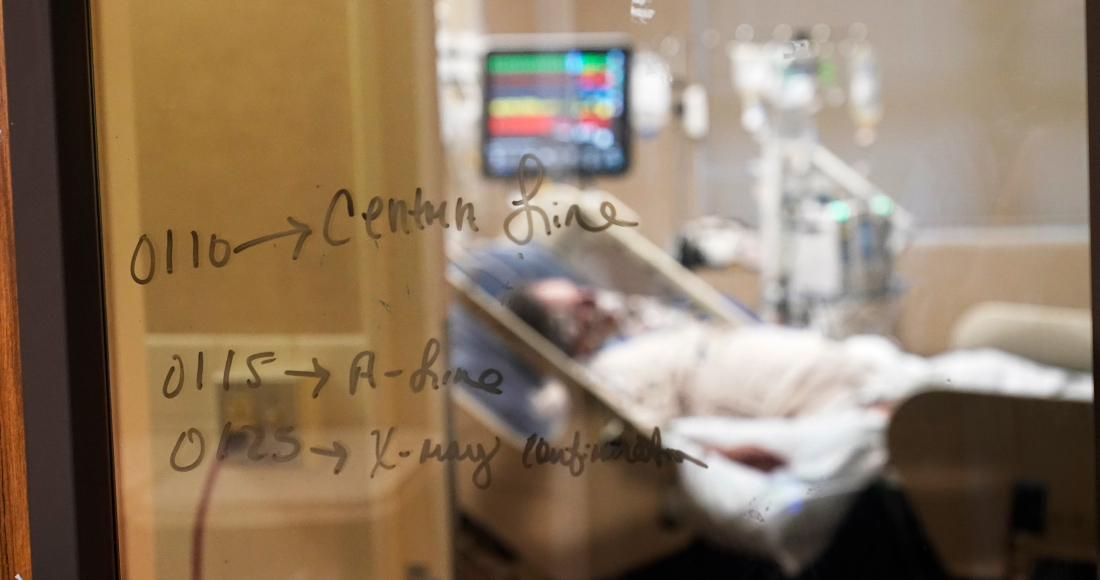 0110 → Central Line
0115 → A-Line
0125 → X-ray confirmation